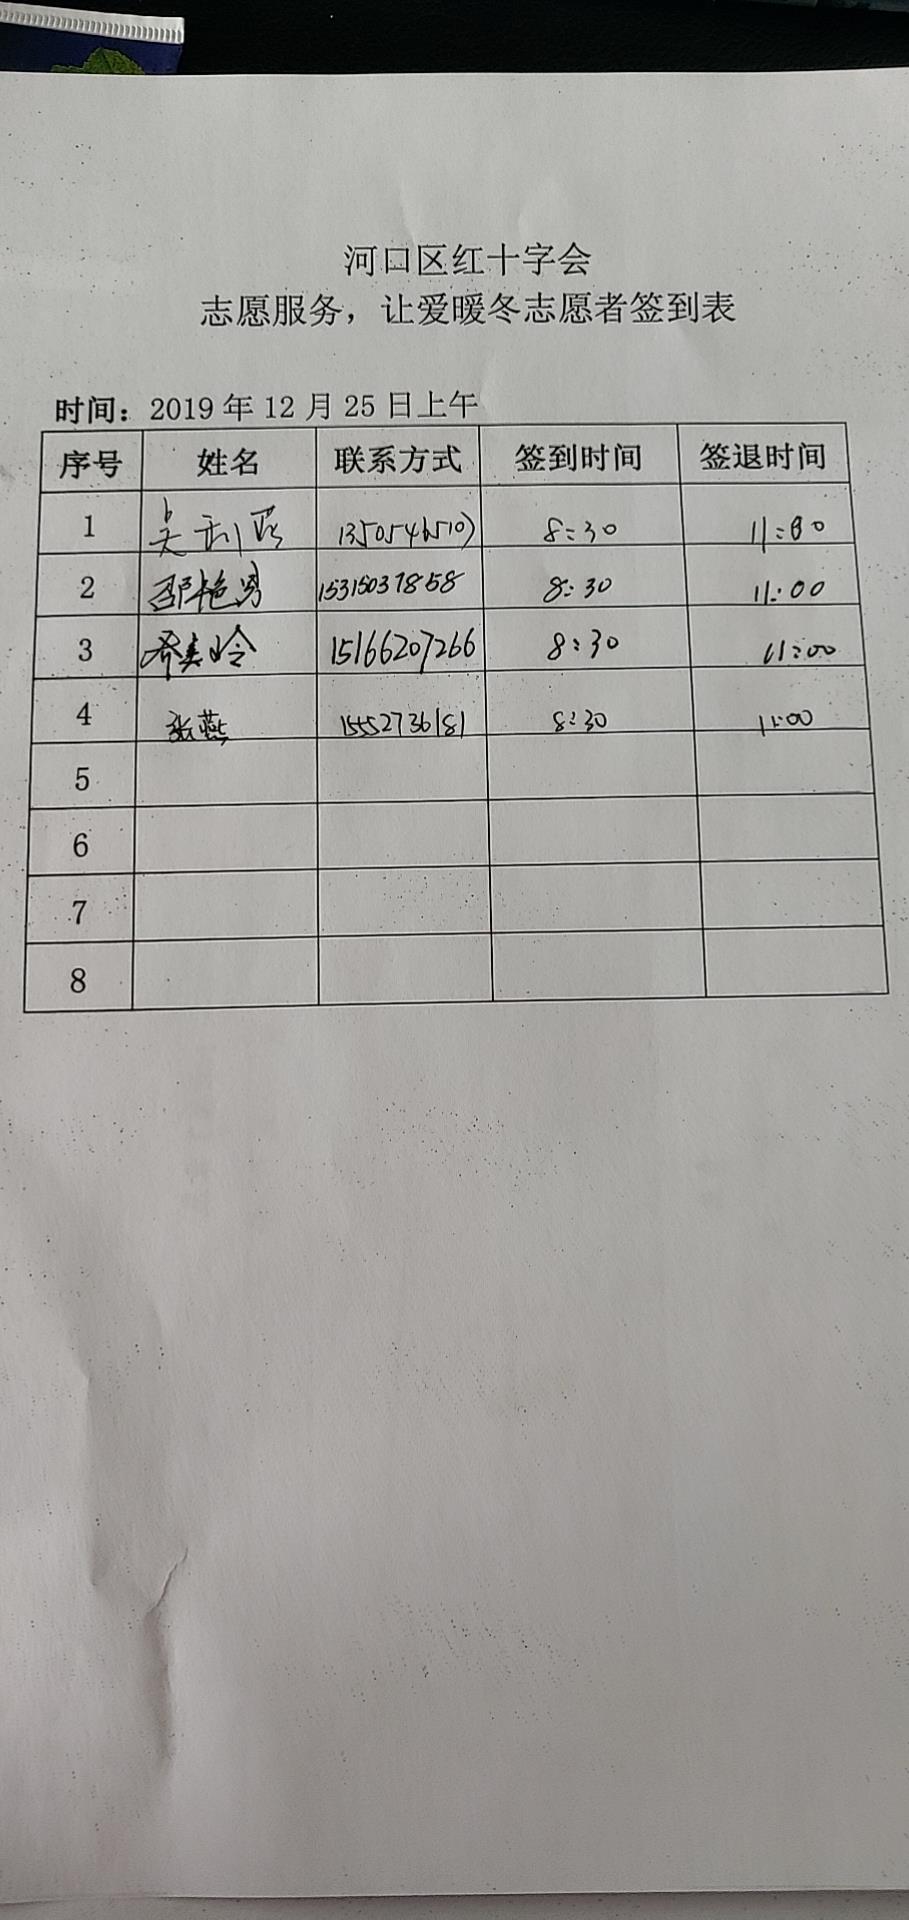 河口区红十字会
志愿服务，让爱暖冬志愿者签到表
时间：2019年12月25日上午
序号 姓名 联系方式 签到时间 签退时间
1 8:30 11:00
2 邵艳男 15315037858 8:30 11:00
3 15166207266 8:30 11:00
4 张燕 15552736181 8:30 11:00
5
6
7
8